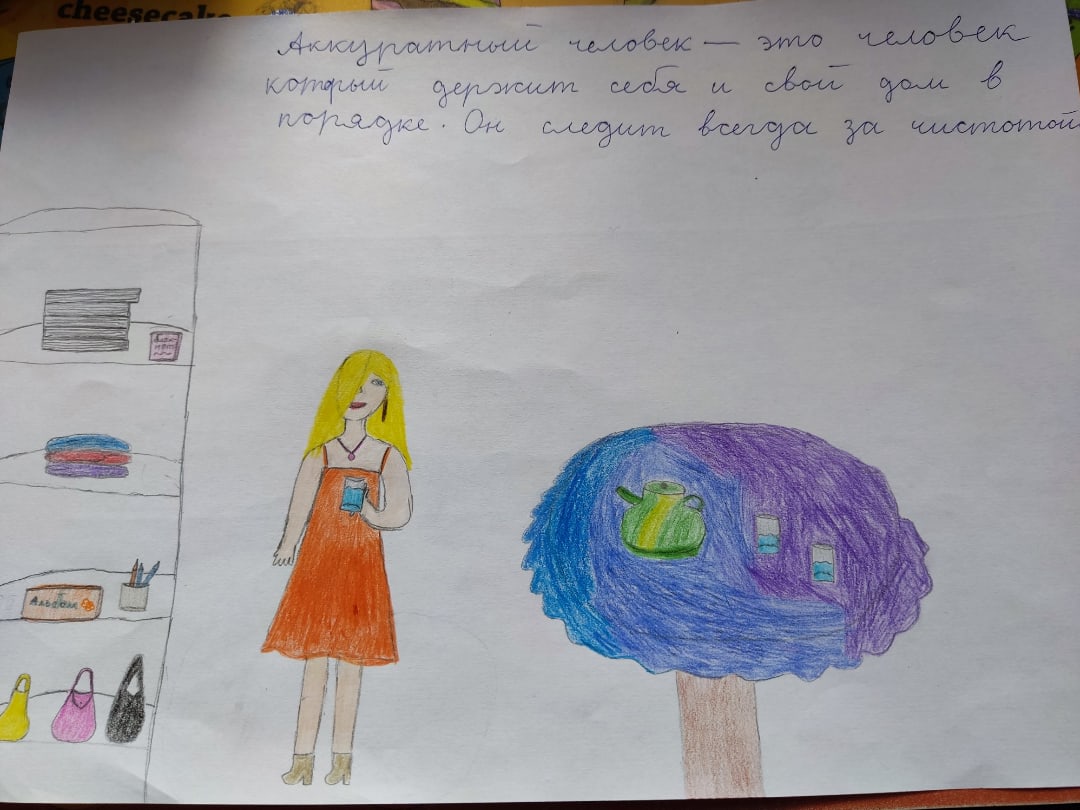 cheesecake
Аккуратный человек — это человек
который держит себя и свой дом в
порядке. Он следит всегда за чистотой
Альбом